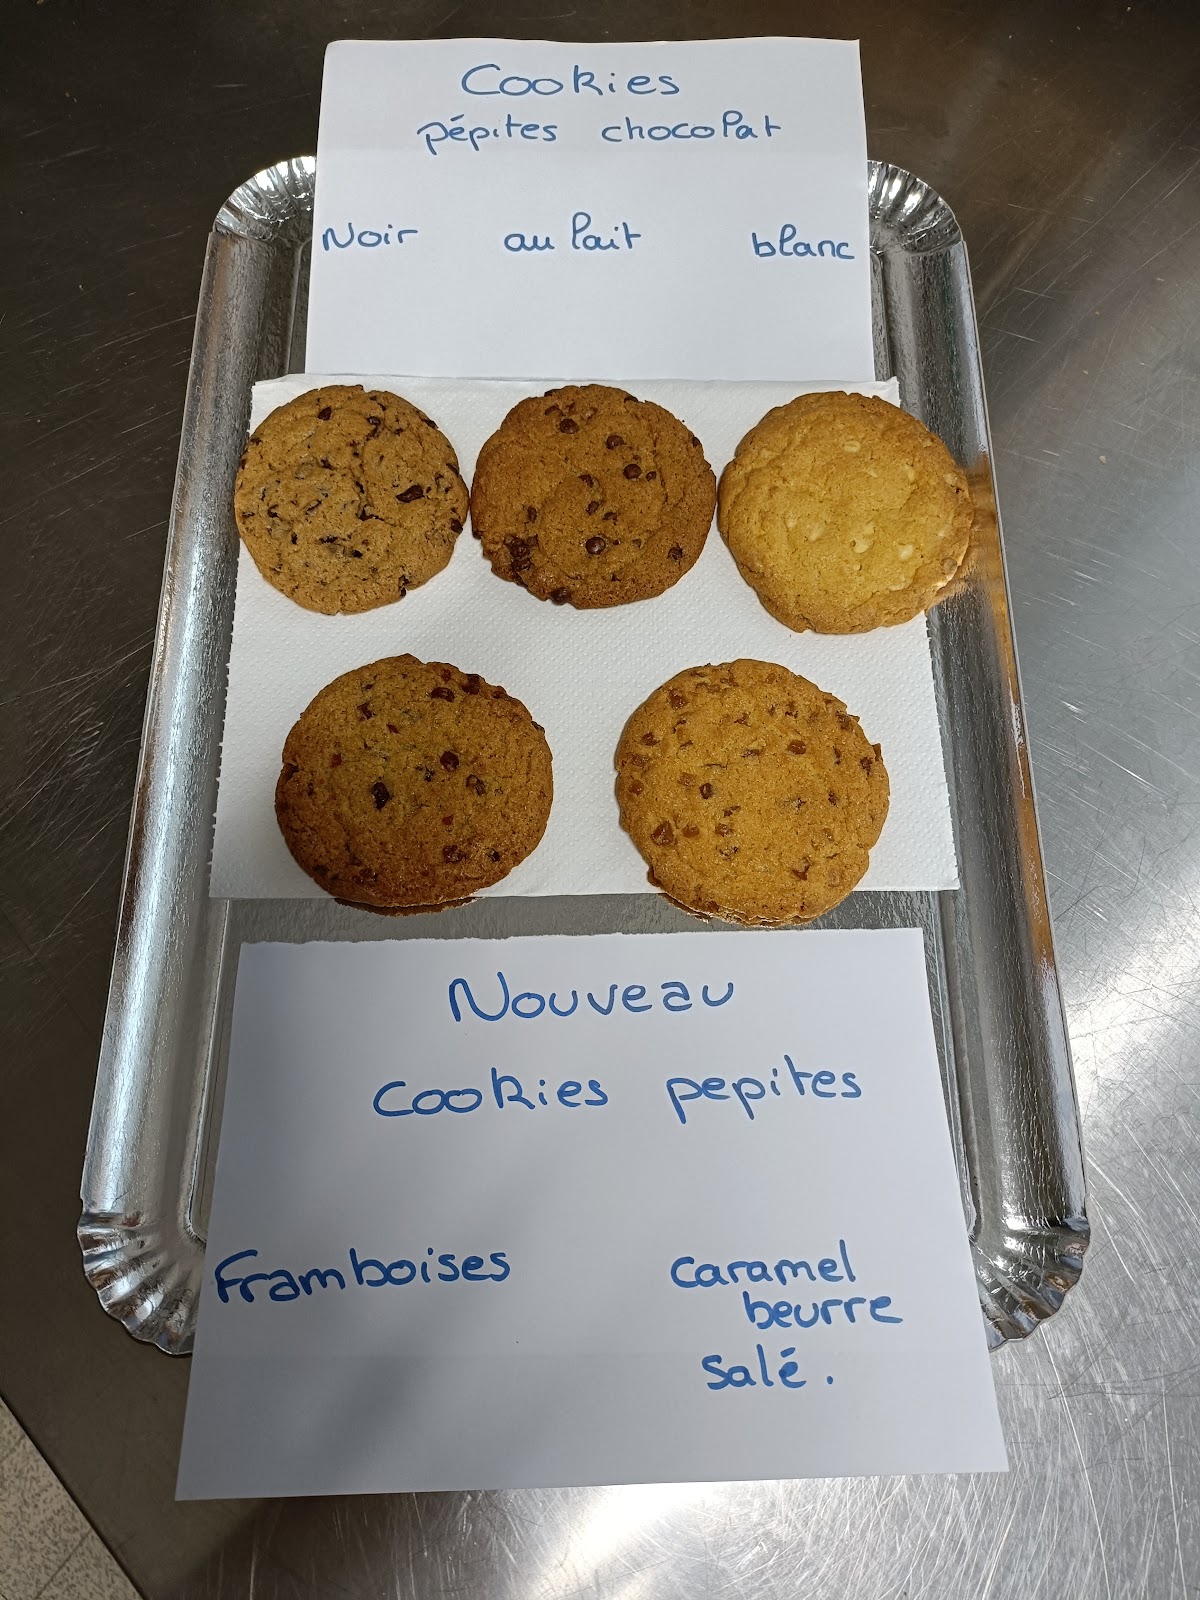 Cookies
pépites chocolat
Noir au lait blanc
Nouveau
Cookies pepites
Framboises
Caramel
beurre
salé.